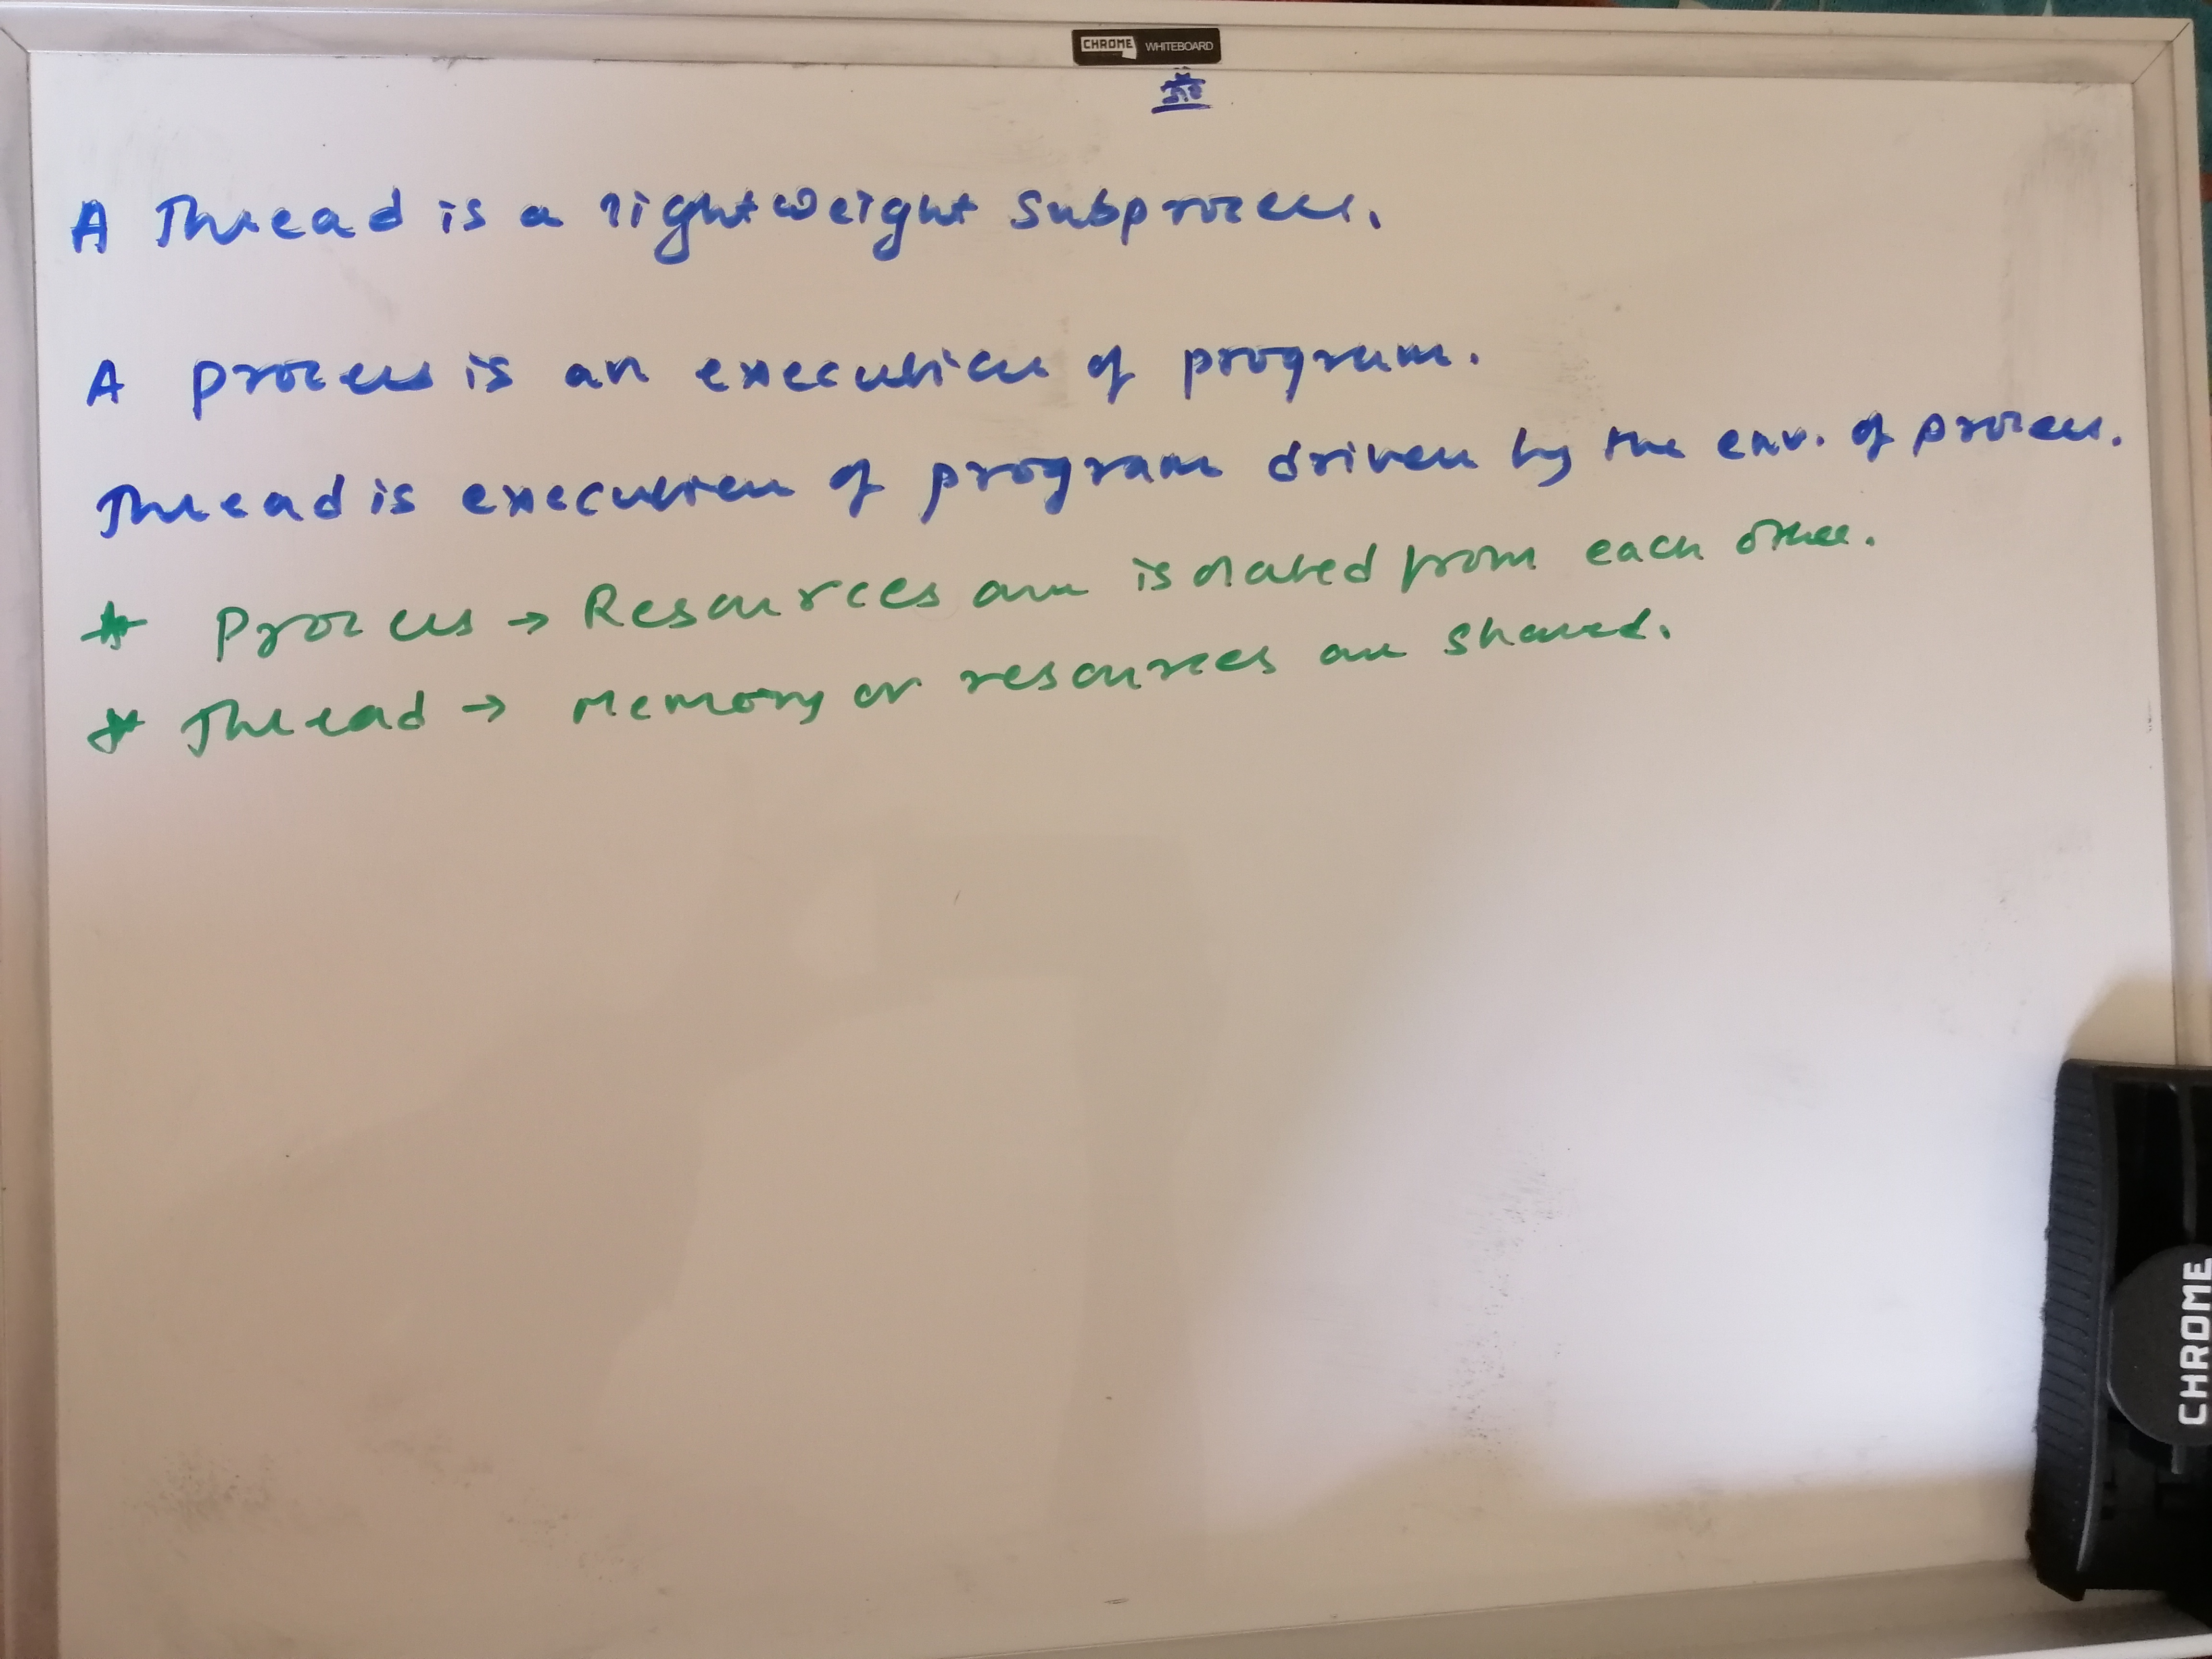 CHROME WHITEBOARD
A Thread is a lightweight subprocess.
A process is an execution of program.
Thread is execution of program driven by the env. of process.
* Process → Resources are isolated from each other.
* Thread → Memory or resources are shared.
CHROME